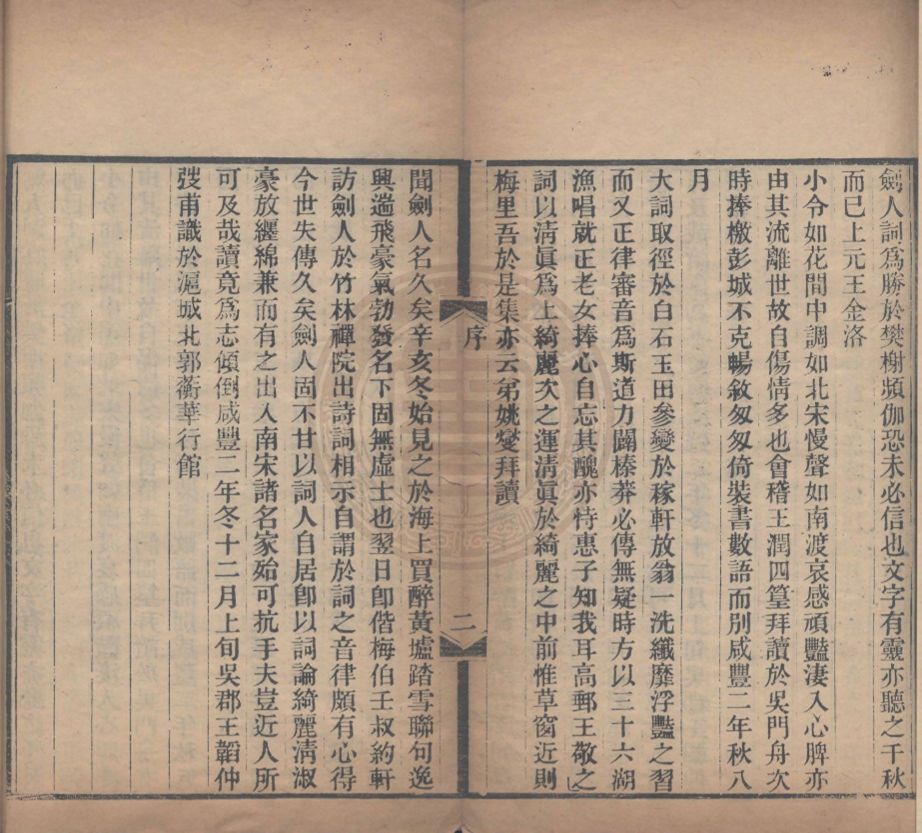 劍人詞爲勝於樊榭頻伽恐未必信也文字有靈亦聽之千秋
而已上元王金洛
小令如花間中調如北宋慢聲如南渡哀感頑豔淒入心脾亦
由其流離世故自傷情多也會稽王潤四篁拜讀於吳門舟次
時捧檄彭城不克暢敘匆匆倚裝書數語而別咸豐二年秋八
月
大詞取徑於白石玉田參變於稼軒放翁一洗纖靡浮豔之習
而又正律審音爲斯道力闢榛莽必傳無疑時方以三十六湖
漁唱就正老女捧心自忘其醜亦特惠子知我耳高郵王敬之
詞以淸眞爲上綺麗次之運淸眞於綺麗之中前惟草窗近則
梅里吾於是集亦云弟姚燮拜讀
序
二
聞劍人名久矣辛亥冬始見之於海上買醉黃壚踏雪聯句逸
興遄飛豪氣勃發名下固無虛士也翌日卽偕梅伯壬叔約軒
訪劍人於竹林禪院出詩詞相示自謂於詞之音律頗有心得
今世失傳久矣劍人固不甘以詞人自居卽以詞論綺麗淸淑
豪放纏綿兼而有之出入南宋諸名家殆可抗手夫豈近人所
可及哉讀竟爲志傾倒咸豐二年冬十二月上旬吳郡王韜仲
弢甫識於滬城北郭蘅華行館